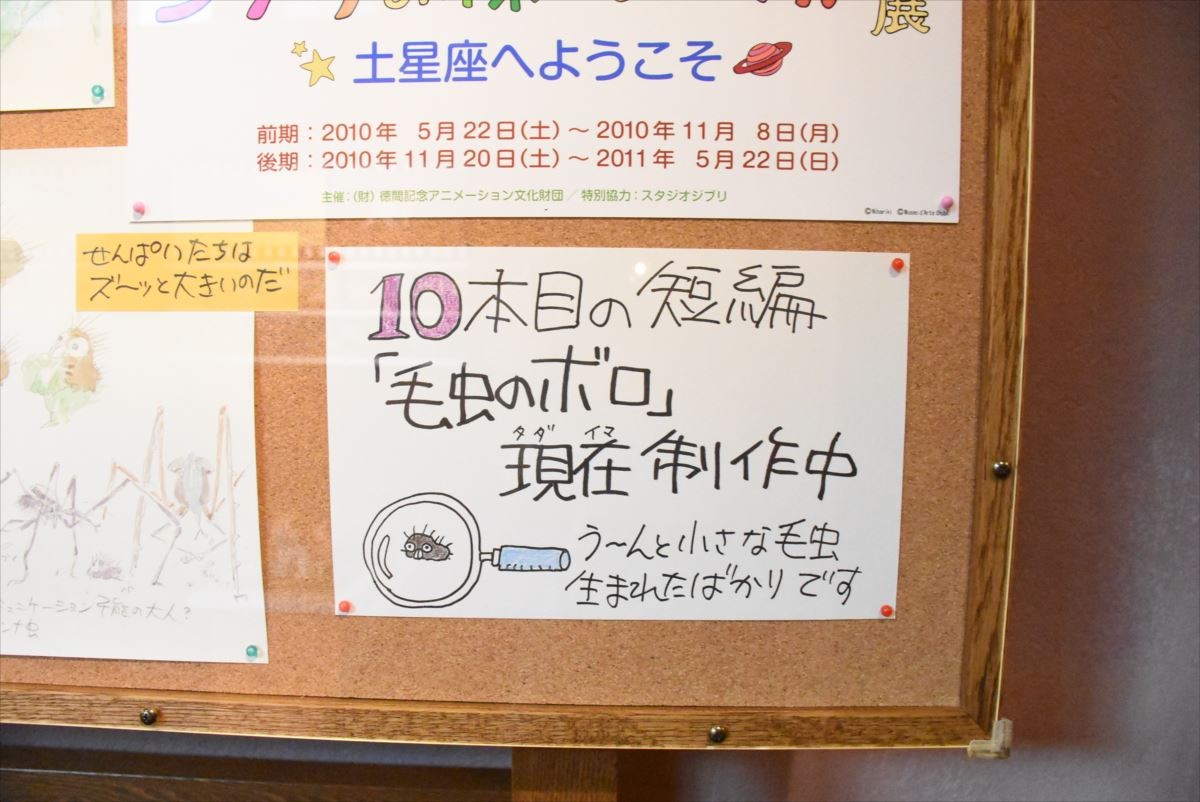 展
土星座へようこそ
前期：2010年 5月22日(土)～2010年11月 8日(月)
後期：2010年11月20日(土)～2011年 5月22日(日)
主催：(財)徳間記念アニメーション文化財団／特別協力：スタジオジブリ
©Nibariki ©Museo d'Arte Ghibli
せんぱいたちは
ズ〜ッと大きいのだ
10本目の短編
「毛虫のボロ」
タダ イマ
現在 制作中
う〜んと小さな毛虫
生まれたばかりです
ュニケーション不能の大人？
ンナ虫